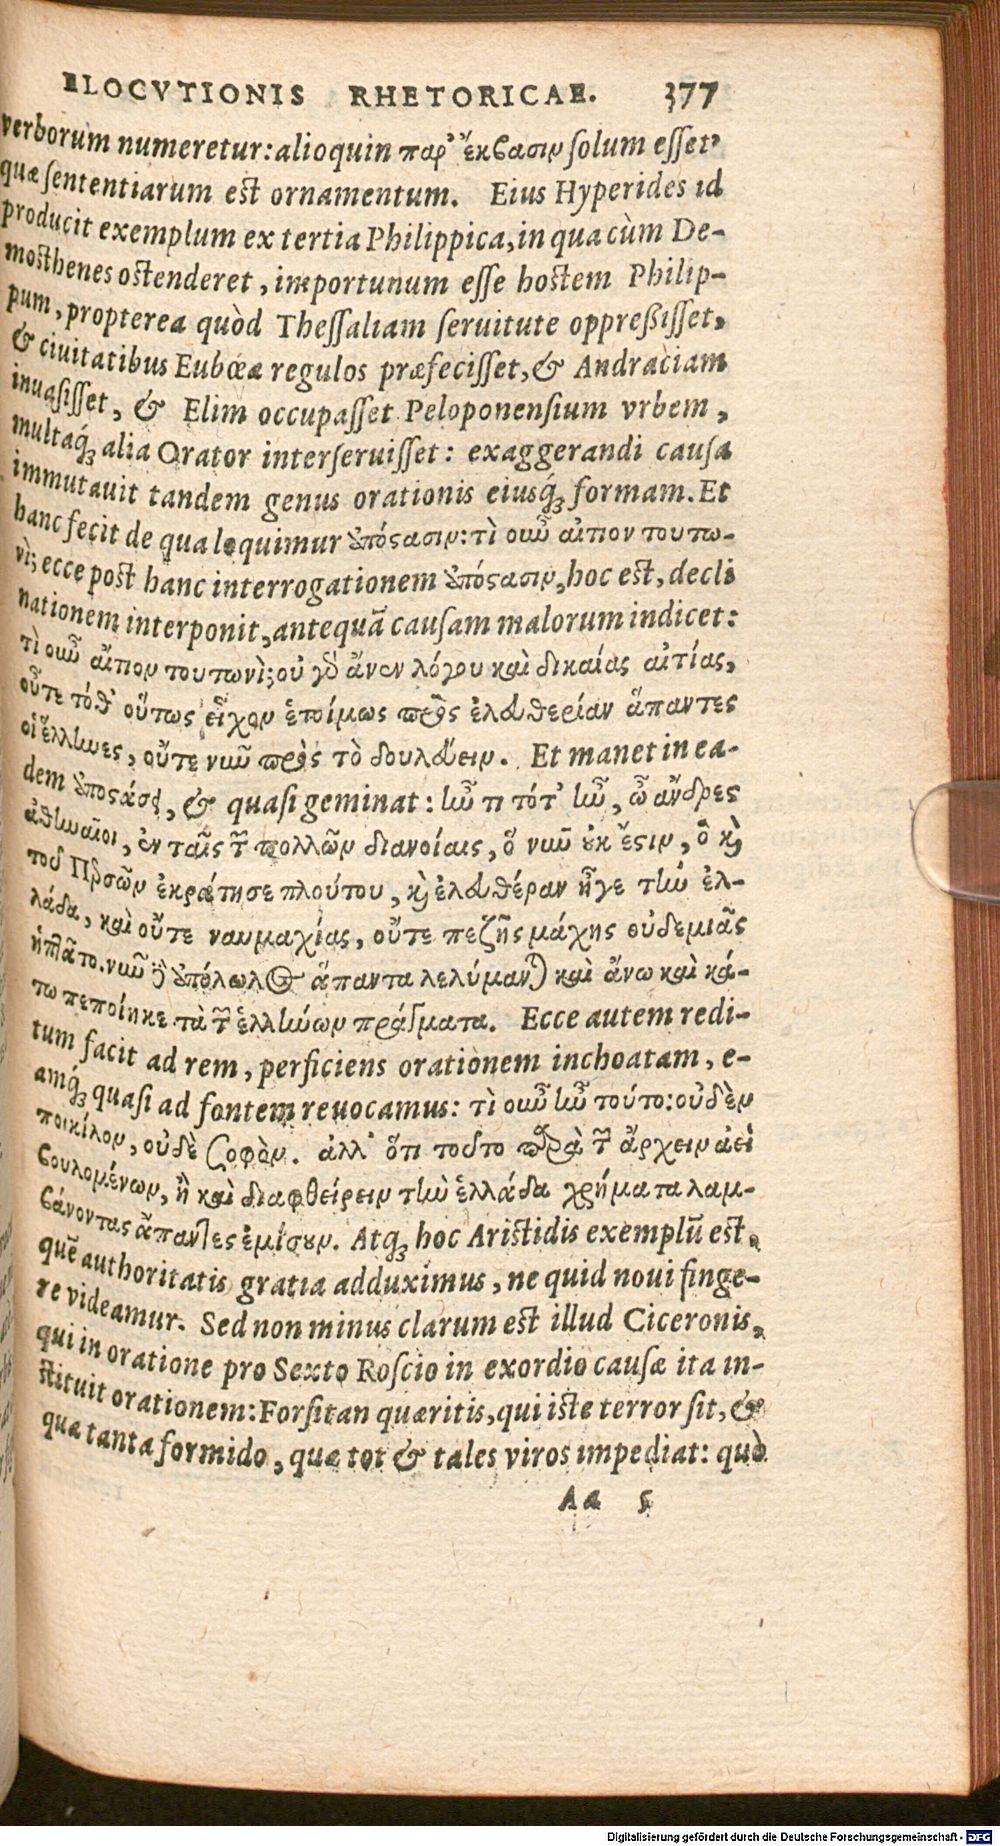 ELOCVTIONIS RHETORICAE. 377
verborum numeretur: alioquin παρ' ἔκϐασιν solum esset,
quæ sententiarum est ornamentum. Eius Hyperides id
producit exemplum ex tertia Philippica, in qua cùm De-
mosthenes ostenderet, importunum esse hostem Philip-
pum, propterea quòd Thessaliam seruitute oppreßisset,
& ciuitatibus Eubœæ regulos præfecisset, & Andraciam
inuasisset, & Elim occupasset Peloponensium vrbem,
multaq́; alia Orator interseruisset: exaggerandi causa
immutauit tandem genus orationis eiusq́; formam. Et
hanc fecit de qua loquimur ὑπόςασιν: τὶ οιῶ αἴτιον τουτω-
νὶ; ecce post hanc interrogationem ὑπόςασιν, hoc est, decli
nationem interponit, antequā causam malorum indicet:
τὶ οιῶ αἴτιον τουτωνὶ; οὐ γὸ ἄνευ λόγου καὶ δικαίας αἰτίας,
οὔτε τόθ' οὕτως εἶχον ἑτοίμως πρὸς ἐλευθερίαν ἅπαντες
οἱ ἕλλιωες, οὔτε νιῶ πρὸς τὸ δουλεύειν. Et manet in ea-
dem ὑποςάσει, & quasi geminat: ἰῶ τι τότ' ἰῶ, ὦ ἄνδρες
ἀθιωαῖοι, ἐν ταῖς τ͂ πολλῶν διανοίαις, ὃ νιῶ ουκ ἔςιν, ὃ κὶ
τοῦ Περσῶν ἐκράτησε πλούτου, κὶ ἐλευθέραν ἦγε τιω ἑλ-
λάδα, καὶ οὔτε ναυμαχίας, οὔτε πεζῆς μάχης οὐδεμιᾶς
ἡττᾶτο. νιῶ δὲ ὑπόλωλος ἅπαντα λελύμανται καὶ ἄνω καὶ κά-
τω πεποίηκε τὰ τ͂ ἑλλιώων πράγματα. Ecce autem redi-
tum facit ad rem, perficiens orationem inchoatam, e-
amq́; quasi ad fontem reuocamus: τὶ οιῶ ἰῶ τούτο: οὐδὲν
ποικίλον, οὐδὲ σοφὸν. ἀλλ' ὅτι τοῦτο παρὰ τ͂ ἄρχειν ἀεὶ
ϐουλομένων, ἢ καὶ διαφθείρειν τιω ἑλλάδα χρήματα λαμ-
ϐάνοντας ἅπαντες ἐμίσουν. Atq; hoc Aristidis exemplū est,
quē authoritatis gratia adduximus, ne quid noui finge-
re videamur. Sed non minus clarum est illud Ciceronis,
qui in oratione pro Sexto Roscio in exordio causæ ita in-
stituit orationem: Forsitan quæritis, qui iste terror sit, &
quæ tanta formido, quæ tot & tales viros impediat: quò
Aa 5
Digitalisierung gefördert durch die Deutsche Forschungsgemeinschaft - DFG